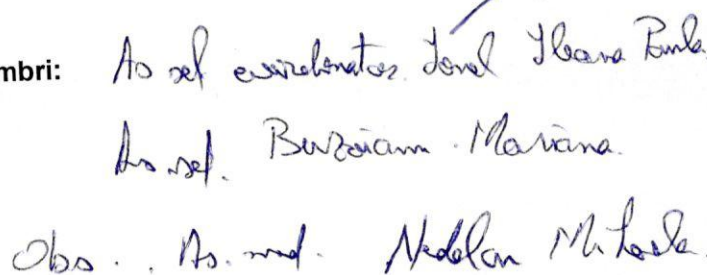 mbri: As șef coordonator Ionel Ileana Paula
As. șef. Burzaianu Mariana.
Obs. As. med. Nedelcu Mihaela.